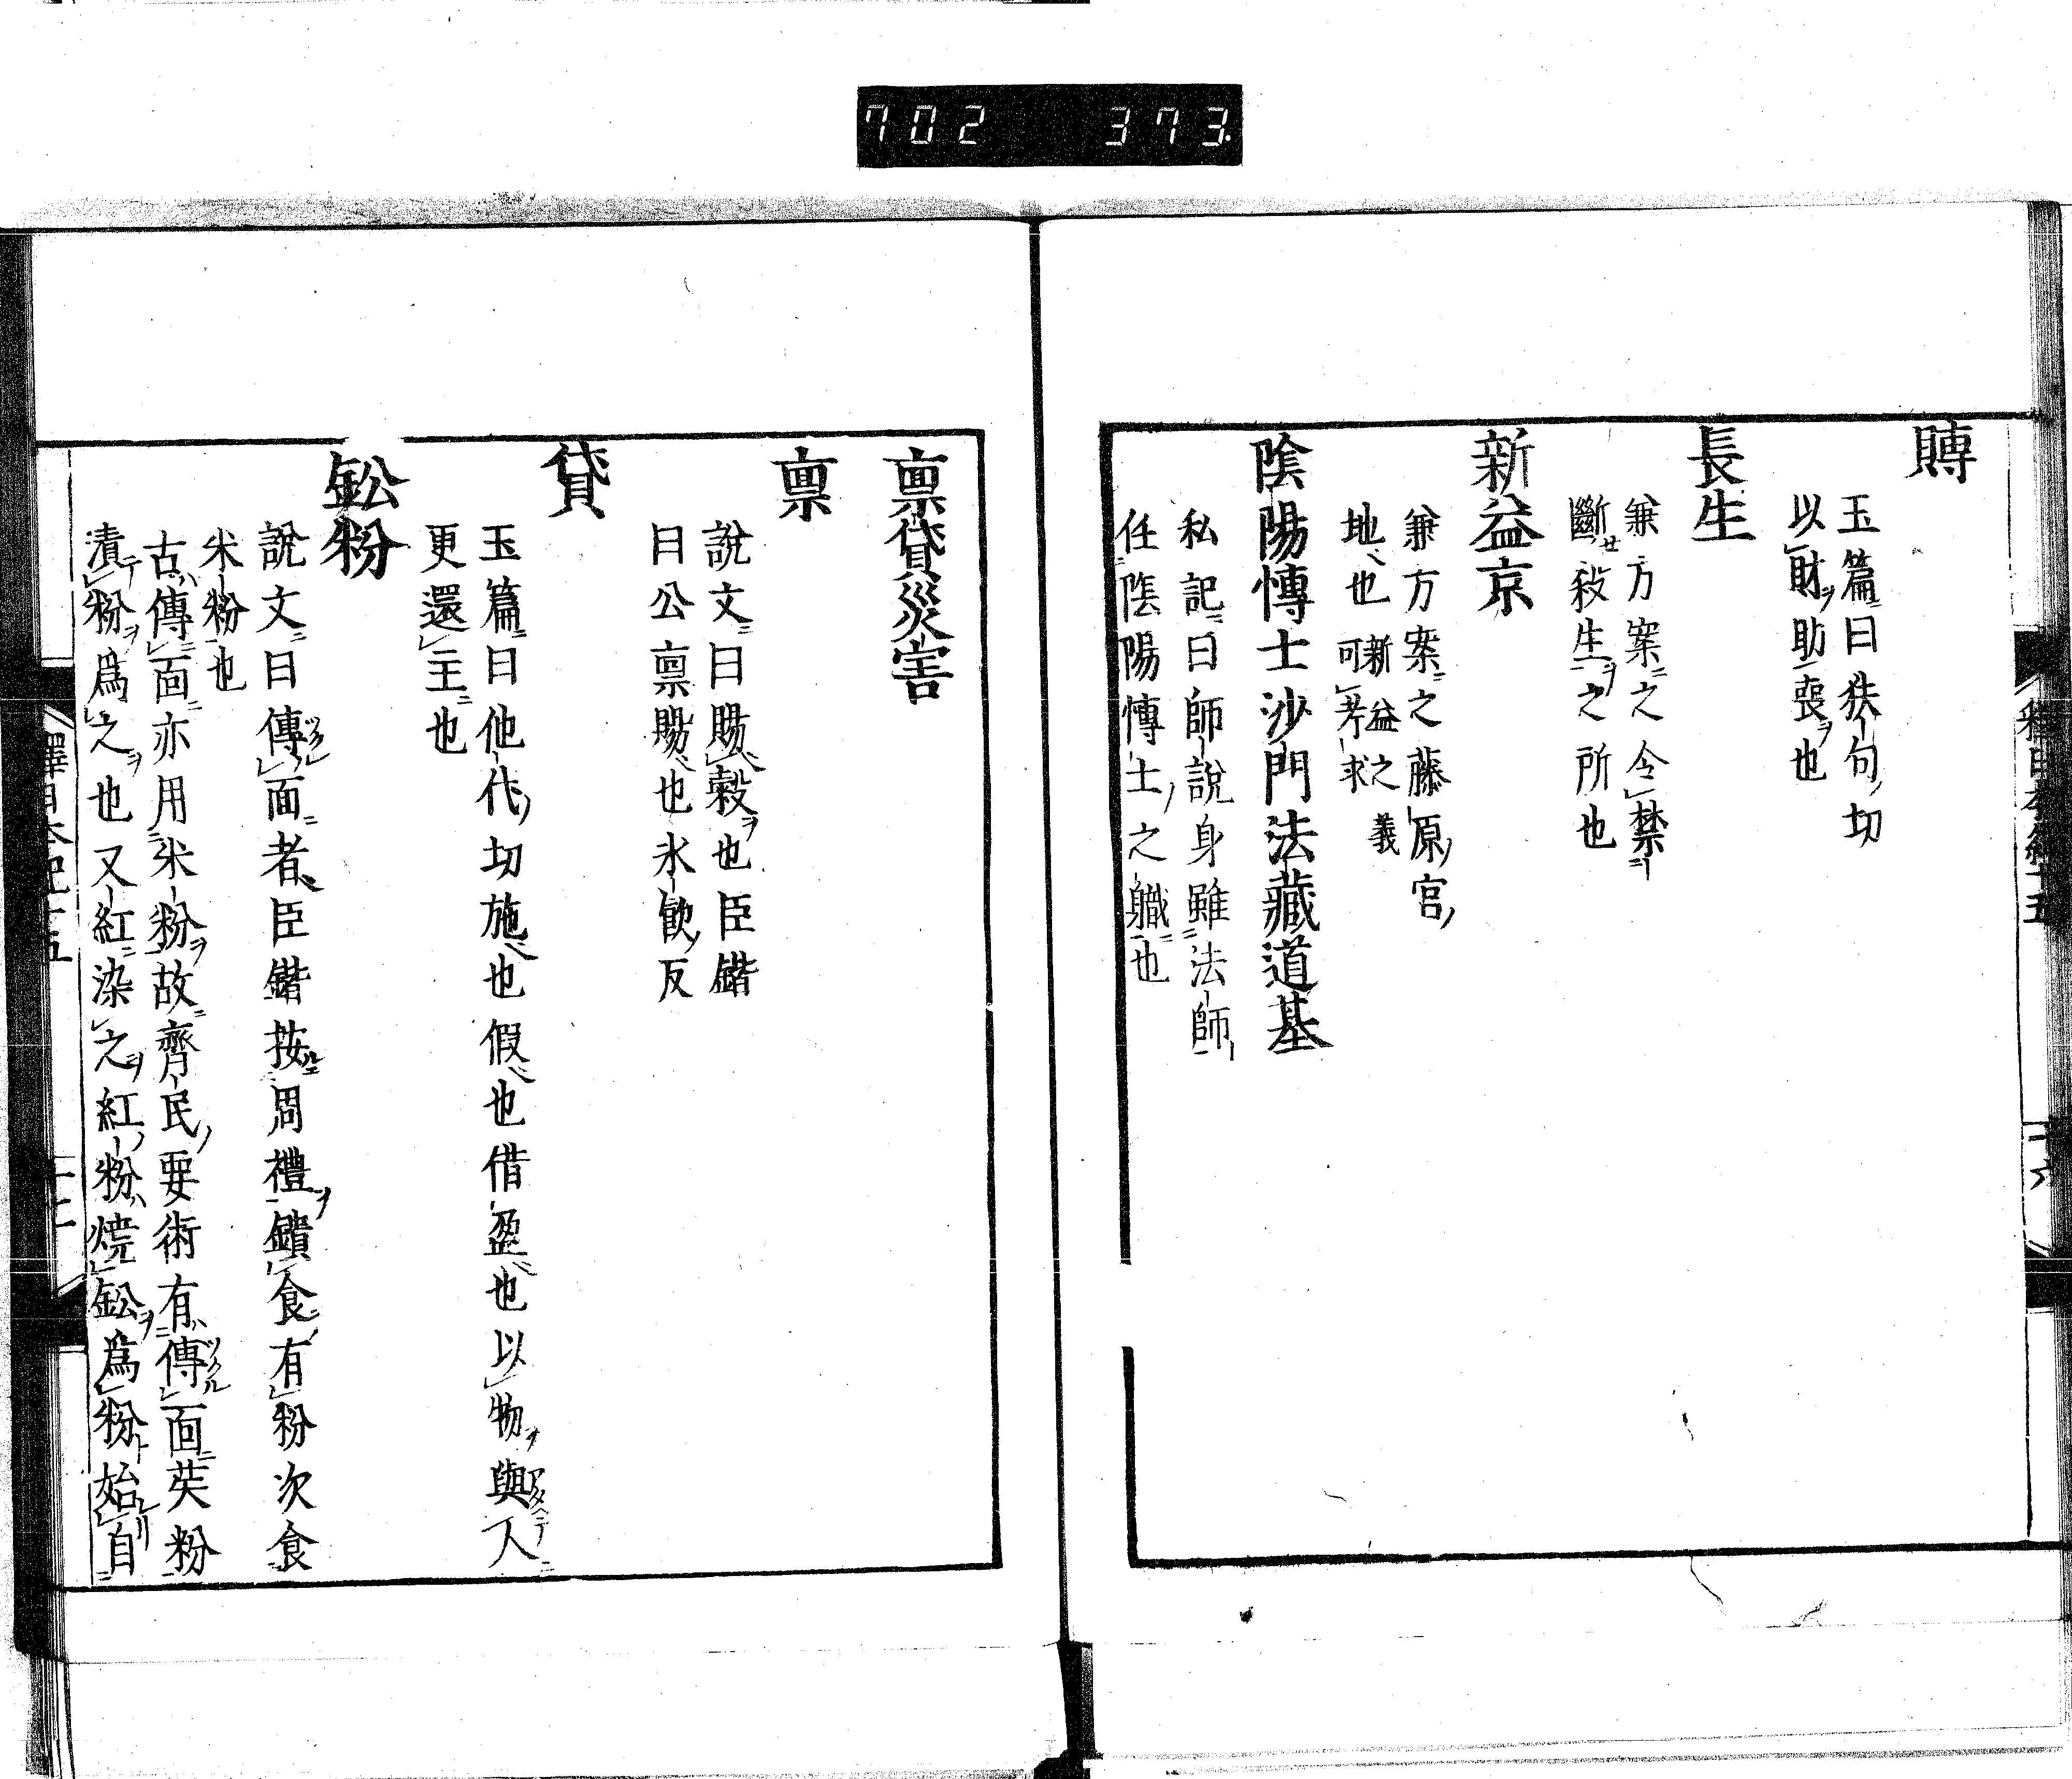 702 373
賻
玉篇曰扶句切
以財助喪也
長生
兼方案之令禁
斷殺生之所也
新益京
兼方案之藤原宮
地也 新益之義
可考求
陰陽博士沙門法藏道基
私記曰師說身雖法師
任陰陽博士之職也
稟貸災害
稟
說文曰賜穀也臣鍇
曰公稟賜也氷飮反
貸
玉篇曰他代切施也假也借盈也以物與人
更還主也
鈆粉
說文曰傅面者臣鍇按周禮饋食有粉次食
米粉也
古傅面亦用米粉故齊民要術有傅面英粉
漬粉爲之也又紅染之紅粉燒鈆爲粉始自
釋日本紀十五